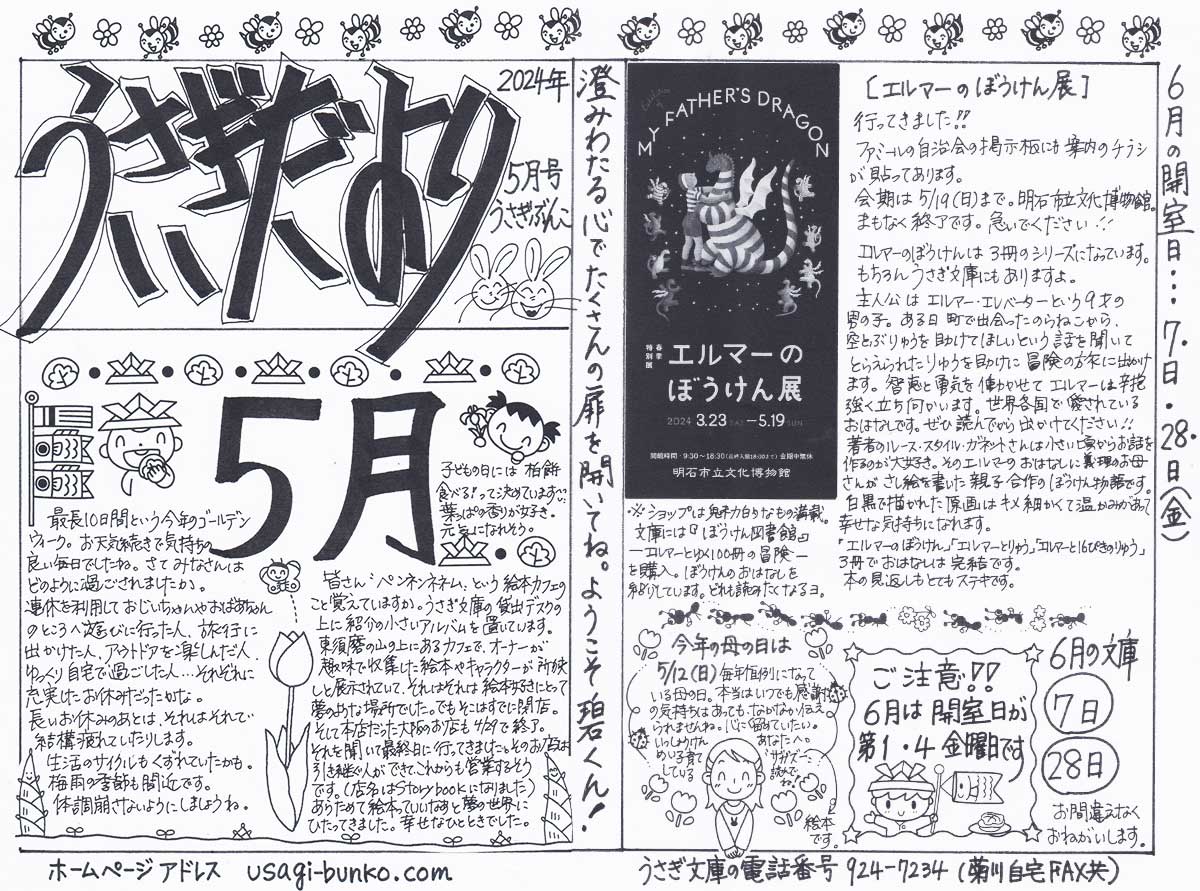 うさぎだより
2024年
5月号
うさぎぶんこ
5月
子どもの日には 柏餅
食べる!って決めています
葉っぱの香りが好き。
元気になれそう。
最長10日間という今年のゴールデン
ウィーク。お天気続きで気持ちの
良い毎日でしたね。さて みなさんは
どのように過ごされましたか。
連休を利用しておじいちゃんやおばあちゃん
のところへ遊びに行った人、旅行に
出かけた人、アウトドアを楽しんだ人、
ゆっくり自宅で過ごした人…それぞれに
充実したお休みだったかな。
長いお休みのあとは、それはそれで
結構疲れていたりします。
生活のサイクルもくずれていたかも。
梅雨の季節も間近です。
体調崩さないようにしましょうね。
皆さん「ペンネンネネム」という絵本カフェの
こと覚えていますか。うさぎ文庫の貸出デスクの
上に紹介の小さいアルバムを置いています。
東須磨の山の上にあるカフェで、オーナーが
趣味で収集した絵本やキャラクターが所狭
しと展示されていて、それはそれは絵本好きにとって
夢のような場所でした。でもそこはすでに閉店。
そして本店だった大阪のお店も4/29で終了。
それを聞いて最終日に行ってきました。そのお店は
引き継ぐ人ができて、これからも営業するそう
です。(店名はStorybookになりました)
あらためて絵本っていいなあと夢の世界に
ひたってきました。幸せなひとときでした。
澄みわたる心でたくさんの扉を開いてね。ようこそ碧くん!
Exhibition of
MY FATHER'S DRAGON
春季
特別展
エルマーの
ぼうけん展
2024 3.23(SAT)—5.19 SUN
開館時間・9:30〜18:30(最終入館18:00まで) 会期中無休
明石市立文化博物館
※ショップは魅力的なもの満載。
文庫には『ぼうけん図書館』
—エルマーとゆく100冊の冒険—
を購入。ぼうけんのおはなしを
紹介しています。どれも読みたくなるヨ。
[エルマーのぼうけん展]
行ってきました!!
ファミールの自治会の掲示板にも案内のチラシ
が貼ってあります。
会期は5/19(日)まで。明石市立文化博物館。
まもなく終了です。急いでください!!
エルマーのぼうけんは3冊のシリーズになっています。
もちろんうさぎ文庫にもありますよ。
主人公はエルマー・エレベーターという9才の
男の子。ある日町で出会ったのらねこから、
空とぶりゅうを助けてほしいという話を聞いて
とらえられたりゅうを助けに冒険の旅に出かけ
ます。智恵と勇気を働かせてエルマーは辛抱
強く立ち向かいます。世界各国で愛されている
おはなしです。ぜひ読んでから出かけてください!!
著者のルース・スタイルス・ガネットさんは小さい頃からお話を
作るのが大好き。そのエルマーのおはなしに義理のお母
さんがさし絵を書いた親子合作のぼうけん物語です。
白黒で描かれた原画はキメ細かくて温かみがあって
幸せな気持ちになれます。
「エルマーのぼうけん」「エルマーとりゅう」「エルマーと16ぴきのりゅう」
3冊でおはなしは完結です。
本の見返しもとてもステキです。
6月の開室日…7.日・28.日(金)
今年の母の日は
5/12(日) 毎年恒例になって
いる母の日。本当はいつでも感謝
の気持ちはあっても、なかなか伝え
られませんね。心に留めていたい。
いっしょうけん
めい子育て
している
あなたへ。
リサガスーに
読んでね!
絵本
です。
ご注意!!
6月は開室日が
第1・4 金曜日です
6月の文庫
7日
28日
お間違えなく
おねがいします。
ホームページ アドレス usagi-bunko.com
うさぎ文庫の電話番号 924-7234 (菊川自宅FAX共)